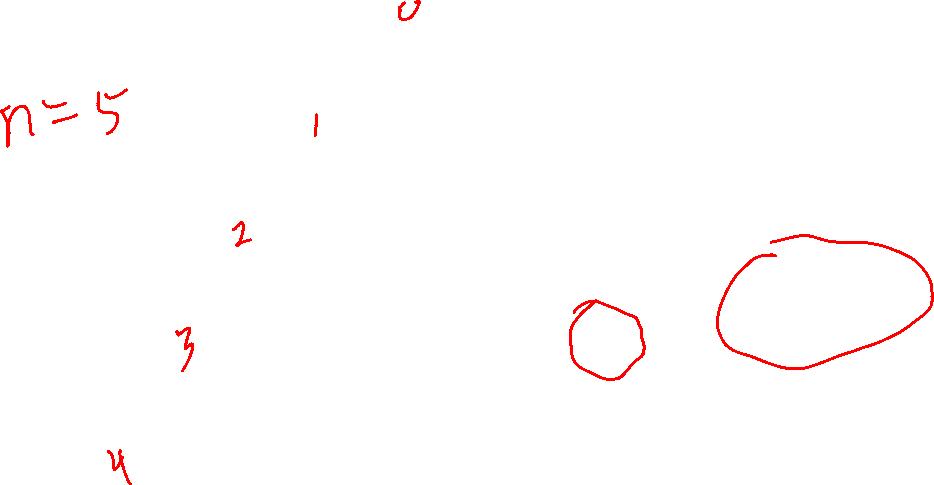 0
n=5
1
2
3
4